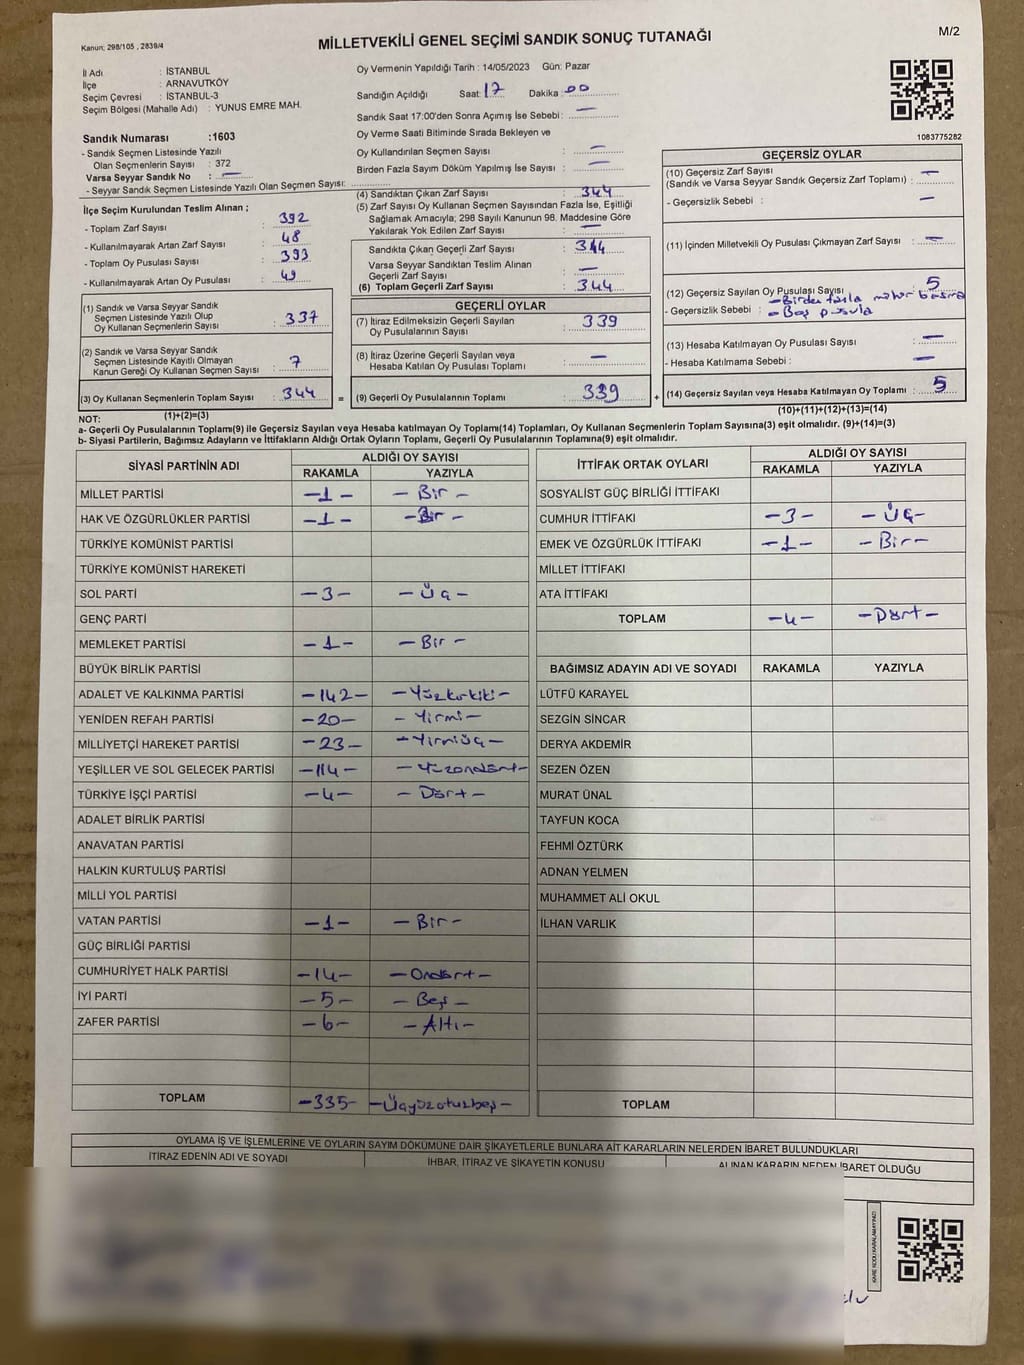 Kanun; 298/105 , 2839/4
MİLLETVEKİLİ GENEL SEÇİMİ SANDIK SONUÇ TUTANAĞI
M/2
İl Adı : İSTANBUL
İlçe : ARNAVUTKÖY
Seçim Çevresi : İSTANBUL-3
Seçim Bölgesi (Mahalle Adı) : YUNUS EMRE MAH.
Sandık Numarası :1603
- Sandık Seçmen Listesinde Yazılı
Olan Seçmenlerin Sayısı : 372
Varsa Seyyar Sandık No : —
- Seyyar Sandık Seçmen Listesinde Yazılı Olan Seçmen Sayısı:
Oy Vermenin Yapıldığı Tarih : 14/05/2023 Gün: Pazar
Sandığın Açıldığı Saat: 17 Dakika : 00
Sandık Saat 17:00'den Sonra Açımış İse Sebebi: —
Oy Verme Saati Bitiminde Sırada Bekleyen ve
Oy Kullandırılan Seçmen Sayısı : —
Birden Fazla Sayım Döküm Yapılmış İse Sayısı : —
1083775282
İlçe Seçim Kurulundan Teslim Alınan ;
- Toplam Zarf Sayısı : 392
- Kullanılmayarak Artan Zarf Sayısı : 48
- Toplam Oy Pusulası Sayısı : 393
- Kullanılmayarak Artan Oy Pusulası : 49
(1) Sandık ve Varsa Seyyar Sandık
Seçmen Listesinde Yazılı Olup
Oy Kullanan Seçmenlerin Sayısı : 337
(2) Sandık ve Varsa Seyyar Sandık
Seçmen Listesinde Kayıtlı Olmayan
Kanun Gereği Oy Kullanan Seçmen Sayısı : 7
(3) Oy Kullanan Seçmenlerin Toplam Sayısı : 344 =
(1)+(2)=(3)
(4) Sandıktan Çıkan Zarf Sayısı : 344
(5) Zarf Sayısı Oy Kullanan Seçmen Sayısından Fazla İse, Eşitliği
Sağlamak Amacıyla; 298 Sayılı Kanunun 98. Maddesine Göre
Yakılarak Yok Edilen Zarf Sayısı : —
Sandıkta Çıkan Geçerli Zarf Sayısı : 344
Varsa Seyyar Sandıktan Teslim Alınan
Geçerli Zarf Sayısı : —
(6) Toplam Geçerli Zarf Sayısı : 344
GEÇERLİ OYLAR
(7) İtiraz Edilmeksizin Geçerli Sayılan
Oy Pusulalarının Sayısı : 339
(8) İtiraz Üzerine Geçerli Sayılan veya
Hesaba Katılan Oy Pusulası Toplamı : —
(9) Geçerli Oy Pusulalarının Toplamı : 339 +
GEÇERSİZ OYLAR
(10) Geçersiz Zarf Sayısı
(Sandık ve Varsa Seyyar Sandık Geçersiz Zarf Toplamı) : —
- Geçersizlik Sebebi : —
(11) İçinden Milletvekili Oy Pusulası Çıkmayan Zarf Sayısı : —
(12) Geçersiz Sayılan Oy Pusulası Sayısı : 5
- Geçersizlik Sebebi : - Birden fazla mühür basma
- Boş pusula
(13) Hesaba Katılmayan Oy Pusulası Sayısı : —
- Hesaba Katılmama Sebebi : —
(14) Geçersiz Sayılan veya Hesaba Katılmayan Oy Toplamı : 5
(10)+(11)+(12)+(13)=(14)
NOT:
a- Geçerli Oy Pusulasının Toplamı(9) ile Geçersiz Sayılan veya Hesaba katılmayan Oy Toplamı(14) Toplamları, Oy Kullanan Seçmenlerin Toplam Sayısına(3) eşit olmalıdır. (9)+(14)=(3)
b- Siyasi Partilerin, Bağımsız Adayların ve İttifakların Aldığı Ortak Oyların Toplamı, Geçerli Oy Pusulalarının Toplamına(9) eşit olmalıdır.
SİYASİ PARTİNİN ADI ALDIĞI OY SAYISI
RAKAMLA YAZIYLA
MİLLET PARTİSİ -1- - Bir -
HAK VE ÖZGÜRLÜKLER PARTİSİ -1- -Bir -
TÜRKİYE KOMÜNİST PARTİSİ
TÜRKİYE KOMÜNİST HAREKETİ
SOL PARTİ -3- - Üç -
GENÇ PARTİ
MEMLEKET PARTİSİ -1- - Bir -
BÜYÜK BİRLİK PARTİSİ
ADALET VE KALKINMA PARTİSİ -142- -Yüzkırkiki-
YENİDEN REFAH PARTİSİ -20- - Yirmi-
MİLLİYETÇİ HAREKET PARTİSİ -23- -Yirmiüç-
YEŞİLLER VE SOL GELECEK PARTİSİ -114- -Yüzondört-
TÜRKİYE İŞÇİ PARTİSİ -4- - Dört -
ADALET BİRLİK PARTİSİ
ANAVATAN PARTİSİ
HALKIN KURTULUŞ PARTİSİ
MİLLİ YOL PARTİSİ
VATAN PARTİSİ -1- - Bir-
GÜÇ BİRLİĞİ PARTİSİ
CUMHURİYET HALK PARTİSİ -14- -Ondört-
İYİ PARTİ -5- - Beş -
ZAFER PARTİSİ -6- -Altı-
TOPLAM -335- -Üçyüzotuzbeş-
İTTİFAK ORTAK OYLARI ALDIĞI OY SAYISI
RAKAMLA YAZIYLA
SOSYALİST GÜÇ BİRLİĞİ İTTİFAKI
CUMHUR İTTİFAKI -3- -Üç-
EMEK VE ÖZGÜRLÜK İTTİFAKI -1- -Bir-
MİLLET İTTİFAKI
ATA İTTİFAKI
TOPLAM -4- -Dört-
BAĞIMSIZ ADAYIN ADI VE SOYADI RAKAMLA YAZIYLA
LÜTFÜ KARAYEL
SEZGİN SİNCAR
DERYA AKDEMİR
SEZEN ÖZEN
MURAT ÜNAL
TAYFUN KOCA
FEHMİ ÖZTÜRK
ADNAN YELMEN
MUHAMMET ALİ OKUL
İLHAN VARLIK
TOPLAM
OYLAMA İŞ VE İŞLEMLERİNE VE OYLARIN SAYIM DÖKÜMÜNE DAİR ŞİKAYETLERLE BUNLARA AİT KARARLARIN NELERDEN İBARET BULUNDUKLARI
İTİRAZ EDENİN ADI VE SOYADI İHBAR, İTİRAZ VE ŞİKAYETİN KONUSU ALINAN KARARIN NEDEN İBARET OLDUĞU
KARE KODU KARALAMAYINIZ!